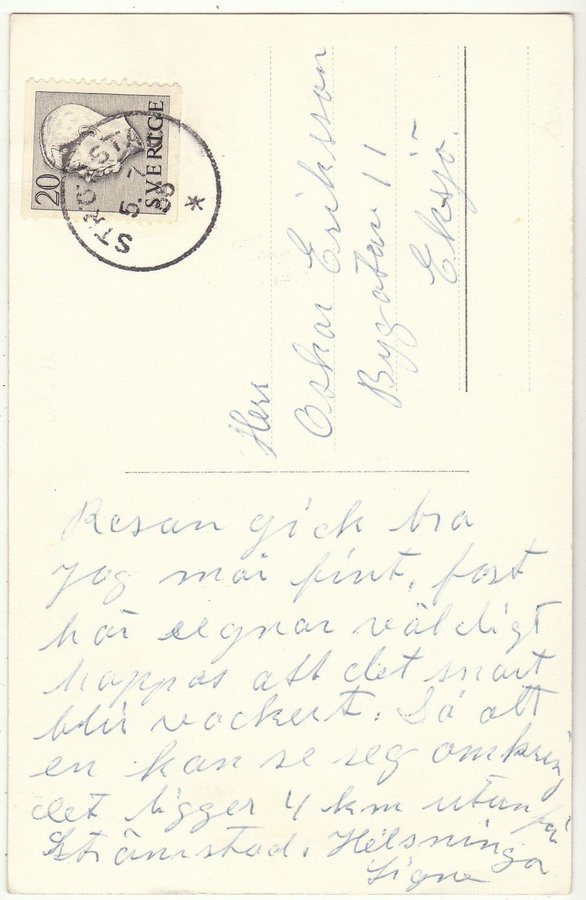 20
SVERIGE
STRÖMSTAD
5. -7
*
Herr
Oskar Eriksson
Bygatan 11
Eksjö.
Resan gick bra
jag mår fint, fast
här regnar väldigt
hoppas att det snart
blir vackert. Så att
en kan se seg omkring
det ligger 4 km utan på
Strömstad. Hälsninga
Signe